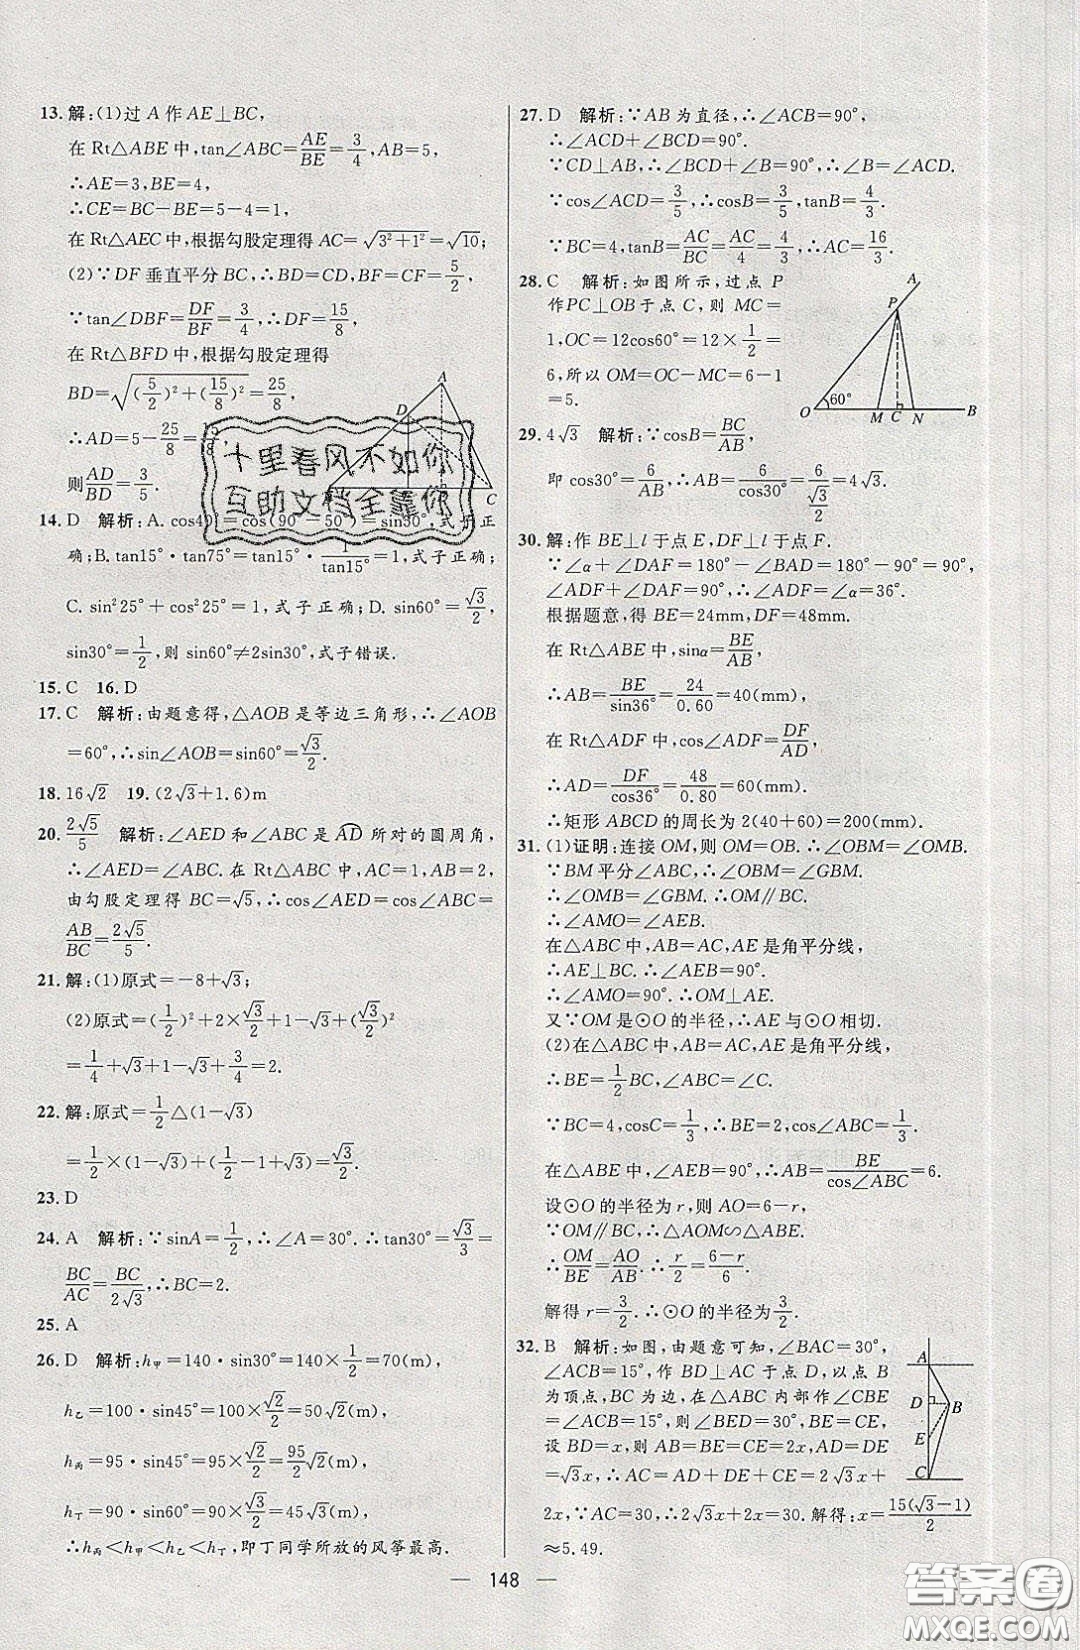 13. 解:(1)过 A 作 AE⊥BC,
在 Rt△ABE 中,tan∠ABC=AE/BE=3/4,AB=5,
∴AE=3,BE=4,
∴CE=BC-BE=5-4=1,
在 Rt△AEC 中,根据勾股定理得 AC=√(3²+1²)=√10;
(2)∵DF 垂直平分 BC,∴BD=CD,BF=CF=5/2,
∵tan∠DBF=DF/BF=3/4,∴DF=15/8,
在 Rt△BFD 中,根据勾股定理得
BD=√((5/2)²+(15/8)²)=25/8,
∴AD=5-25/8=15/8,
则AD/BD=3/5.
A
D
C
十里春风不如你
互助文档全靠你
14. D 解析:A. cos40°=cos(90°-50°)=sin30°,式子正
确;B. tan15°·tan75°=tan15°·1/tan15°=1,式子正确;
C. sin²25°+cos²25°=1,式子正确;D. sin60°=√3/2,
sin30°=1/2,则 sin60°≠2sin30°,式子错误.
15. C 16. D
17. C 解析:由题意得,△AOB 是等边三角形,∴∠AOB
=60°,∴sin∠AOB=sin60°=√3/2.
18. 16√2 19. (2√3+1.6)m
20. 2√5/5 解析:∠AED 和∠ABC 是 AD 所对的圆周角,
∴∠AED=∠ABC. 在 Rt△ABC 中,AC=1,AB=2,
由勾股定理得 BC=√5,∴cos∠AED=cos∠ABC=
AB/BC=2√5/5.
21. 解:(1)原式=-8+√3;
(2)原式=(1/2)²+2×√3/2+1-√3+(√3/2)²
=1/4+√3+1-√3+3/4=2.
22. 解:原式=1/2△(1-√3)
=1/2×(1-√3)+(1/2-1+√3)=√3/2.
23. D
24. A 解析:∵sinA=1/2,∴∠A=30°.∴tan30°=√3/3=
BC/AC=BC/2√3,∴BC=2.
25. A
26. D 解析:h甲=140·sin30°=140×1/2=70(m),
h乙=100·sin45°=100×√2/2=50√2(m),
h丙=95·sin45°=95×√2/2=95/2√2(m),
h丁=90·sin60°=90×√3/2=45√3(m),
∴h丙<h甲<h乙<h丁,即丁同学所放的风筝最高.
27. D 解析:∵AB 为直径,∴∠ACB=90°,
∴∠ACD+∠BCD=90°.
∵CD⊥AB,∴∠BCD+∠B=90°,∴∠B=∠ACD.
∵cos∠ACD=3/5,∴cosB=3/5,tanB=4/3.
∵BC=4,tanB=AC/BC=AC/4=4/3,∴AC=16/3.
28. C 解析:如图所示,过点 P
作PC⊥OB于点C,则 MC=
1,OC=12cos60°=12×1/2=
6,所以 OM=OC-MC=6-1
=5.
A
P
60°
O M C N B
29. 4√3 解析:∵cosB=BC/AB,
即 cos30°=6/AB,∴AB=6/cos30°=6/(√3/2)=4√3.
30. 解:作 BE⊥l 于点 E,DF⊥l 于点 F.
∵∠α+∠DAF=180°-∠BAD=180°-90°=90°,
∠ADF+∠DAF=90°,∴∠ADF=∠α=36°.
根据题意,得 BE=24mm,DF=48mm.
在 Rt△ABE 中,sinα=BE/AB,
∴AB=BE/sin36°=24/0.60=40(mm),
在 Rt△ADF 中,cos∠ADF=DF/AD,
∴AD=DF/cos36°=48/0.80=60(mm).
∴矩形 ABCD 的周长为 2(40+60)=200(mm).
31. (1)证明:连接 OM,则 OM=OB.∴∠OBM=∠OMB.
∵BM平分∠ABC.∴∠OBM=∠GBM.
∴∠OMB=∠GBM.∴OM∥BC.
∴∠AMO=∠AEB.
在△ABC 中,AB=AC,AE 是角平分线,
∴AE⊥BC.∴∠AEB=90°.
∴∠AMO=90°.∴OM⊥AE.
又∵OM 是⊙O 的半径,∴AE 与⊙O 相切.
(2)在△ABC 中,AB=AC,AE 是角平分线,
∴BE=1/2BC,∠ABC=∠C.
∵BC=4,cosC=1/3,∴BE=2,cos∠ABC=1/3.
在△ABE 中,∠AEB=90°,∴AB=BE/cos∠ABC=6.
设⊙O 的半径为 r,则 AO=6-r,
∵OM∥BC,∴△AOM∽△ABE.
∴OM/BE=AO/AB.∴r/2=(6-r)/6.
解得 r=3/2.∴⊙O 的半径为3/2.
32. B 解析:如图,由题意可知,∠BAC=30°,
∠ACB=15°,作 BD⊥AC 于点 D,以点 B
为顶点,BC 为边,在△ABC 内部作∠CBE
=∠ACB=15°,则∠BED=30°,BE=CE,
设 BD=x,则 AB=BE=CE=2x,AD=DE
=√3x,∴AC=AD+DE+CE=2√3x+
2x,∵AC=30,∴2√3x+2x=30.解得:x=15(√3-1)/2
≈5.49.
A
D
B
E
C
148
答案圈
MXQE.COM